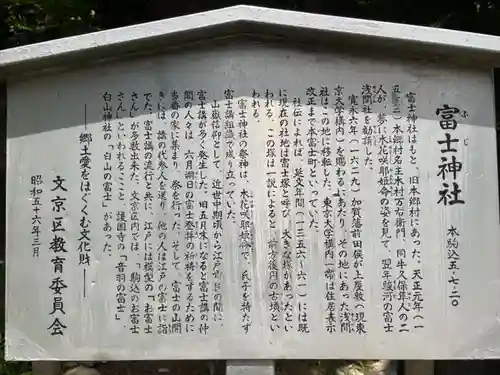 富士神社
ふじ
本駒込五・七・二〇
富士神社はもと、旧本郷村にあった。天正元年(一
五七三)本郷村名主木村万右衛門、同牛久保隼人の二
人が、夢に木花咲耶姫命の姿を見て、翌年駿河の富士
浅間社を勧請した。
寛永六年(一六二九)加賀藩前田侯が上屋敷(現東
京大学構内)を賜わるにあたり、その地にあった浅間
社はこの地に移転した。東京大学構内一帯は住居表示
改正まで本富士町といっていた。
社伝によれば、延文年間(一三五六〜六一)には既
に現在の社地は富士塚と呼び、大きな塚があったとい
われる。この塚は一説によると、前方後円の古墳とい
われる。
富士神社の祭神は、木花咲耶姫命で、氏子を持たず
富士講組織で成り立っていた。
山嶽信仰として、近世中期頃から江戸市民の間に、
富士講が多く発生した。旧五月末になると富士講の仲
間の人々は、六月朔日の富士登拝の祈祷をするために
当番の家に集まり、祭を行った。そして、富士の山開
きには、講の代表人を送り、他の人は江戸の富士に詣
でた。富士講の流行と共に、江戸には模型の「お富士
さん」が多数出来た。文京区内では、「駒込のお富士
さん」といわれるここと、護国寺の「音羽の富士」、
白山神社の「白山の富士」があった。
―郷土愛をはぐくむ文化財―
文京区教育委員会
昭和五十六年三月